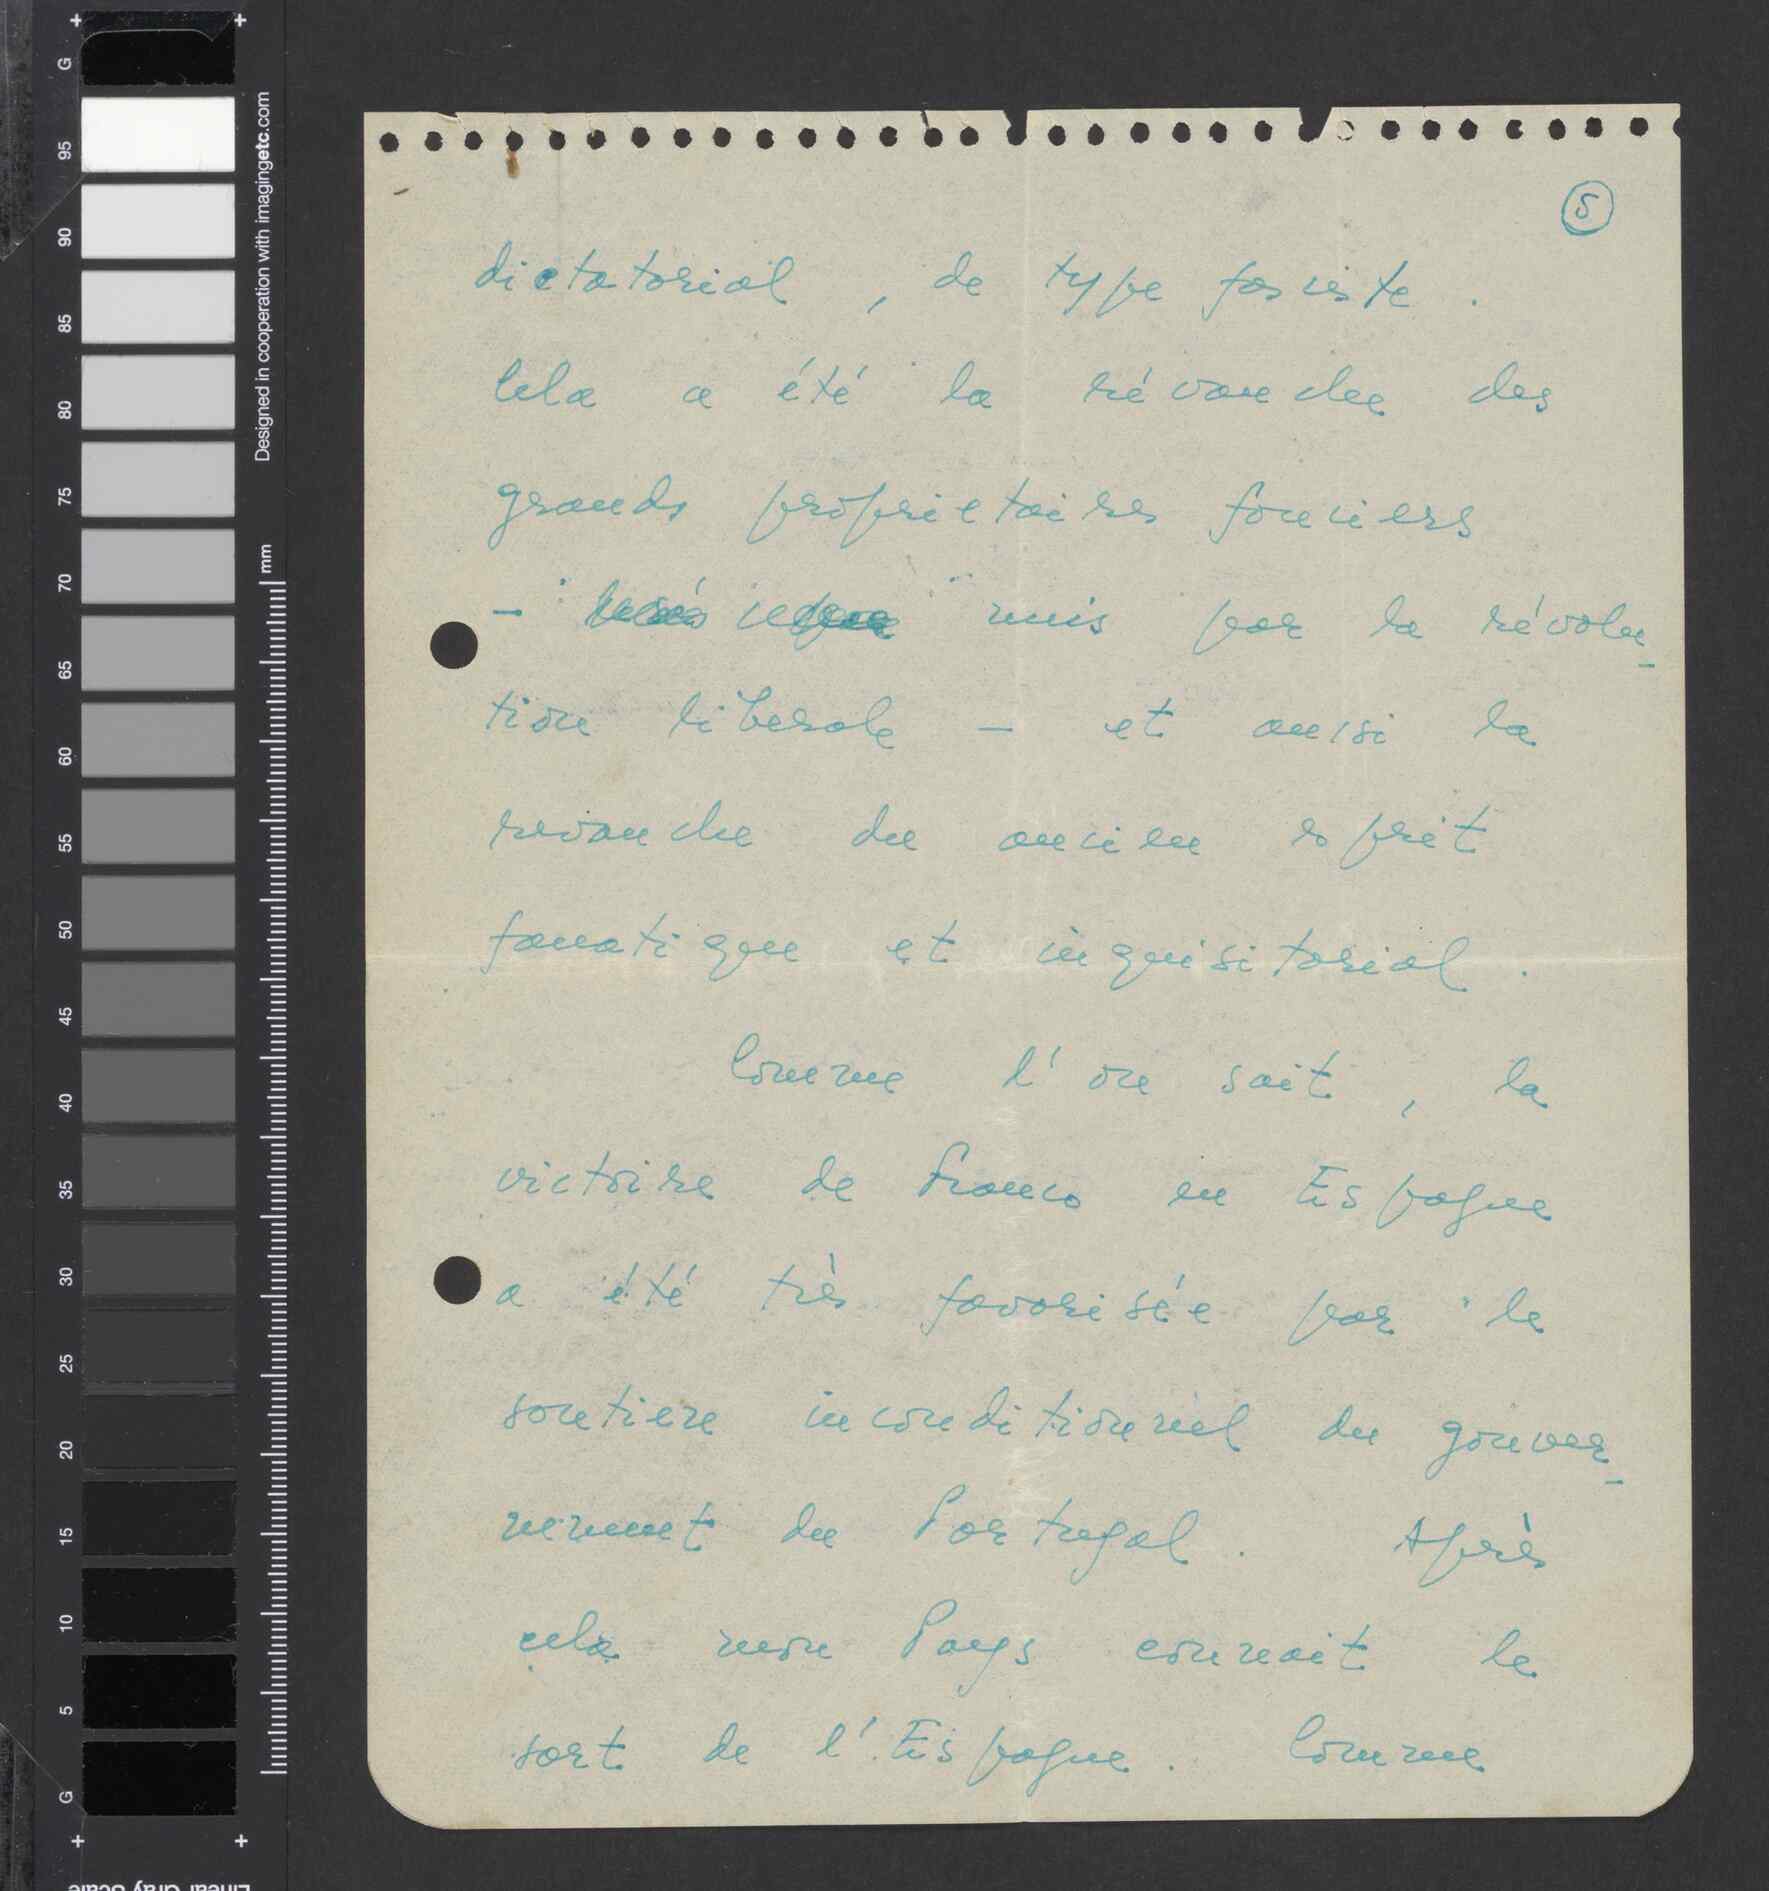 5
dictatorial , de type fasciste .
Cela a été la révanche des
grands proprietaires fonciers
- unis par la révolu-
tion liberale - et aussi la
revanche du ancien esprit
fanatique et inquisitorial .
Comme l'on sait , la
victoire de Franco en Espagne
a été très favorisée par le
soutien inconditionnel du gouver-
nement du Portugal . Après
cela mon Pays connait le
sort de l'Espagne . Comme
G
95
90
85
80
75
70
65
60
55
50
45
40
35
30
25
20
15
10
5
G
Designed in cooperation with imagingetc.com
mm